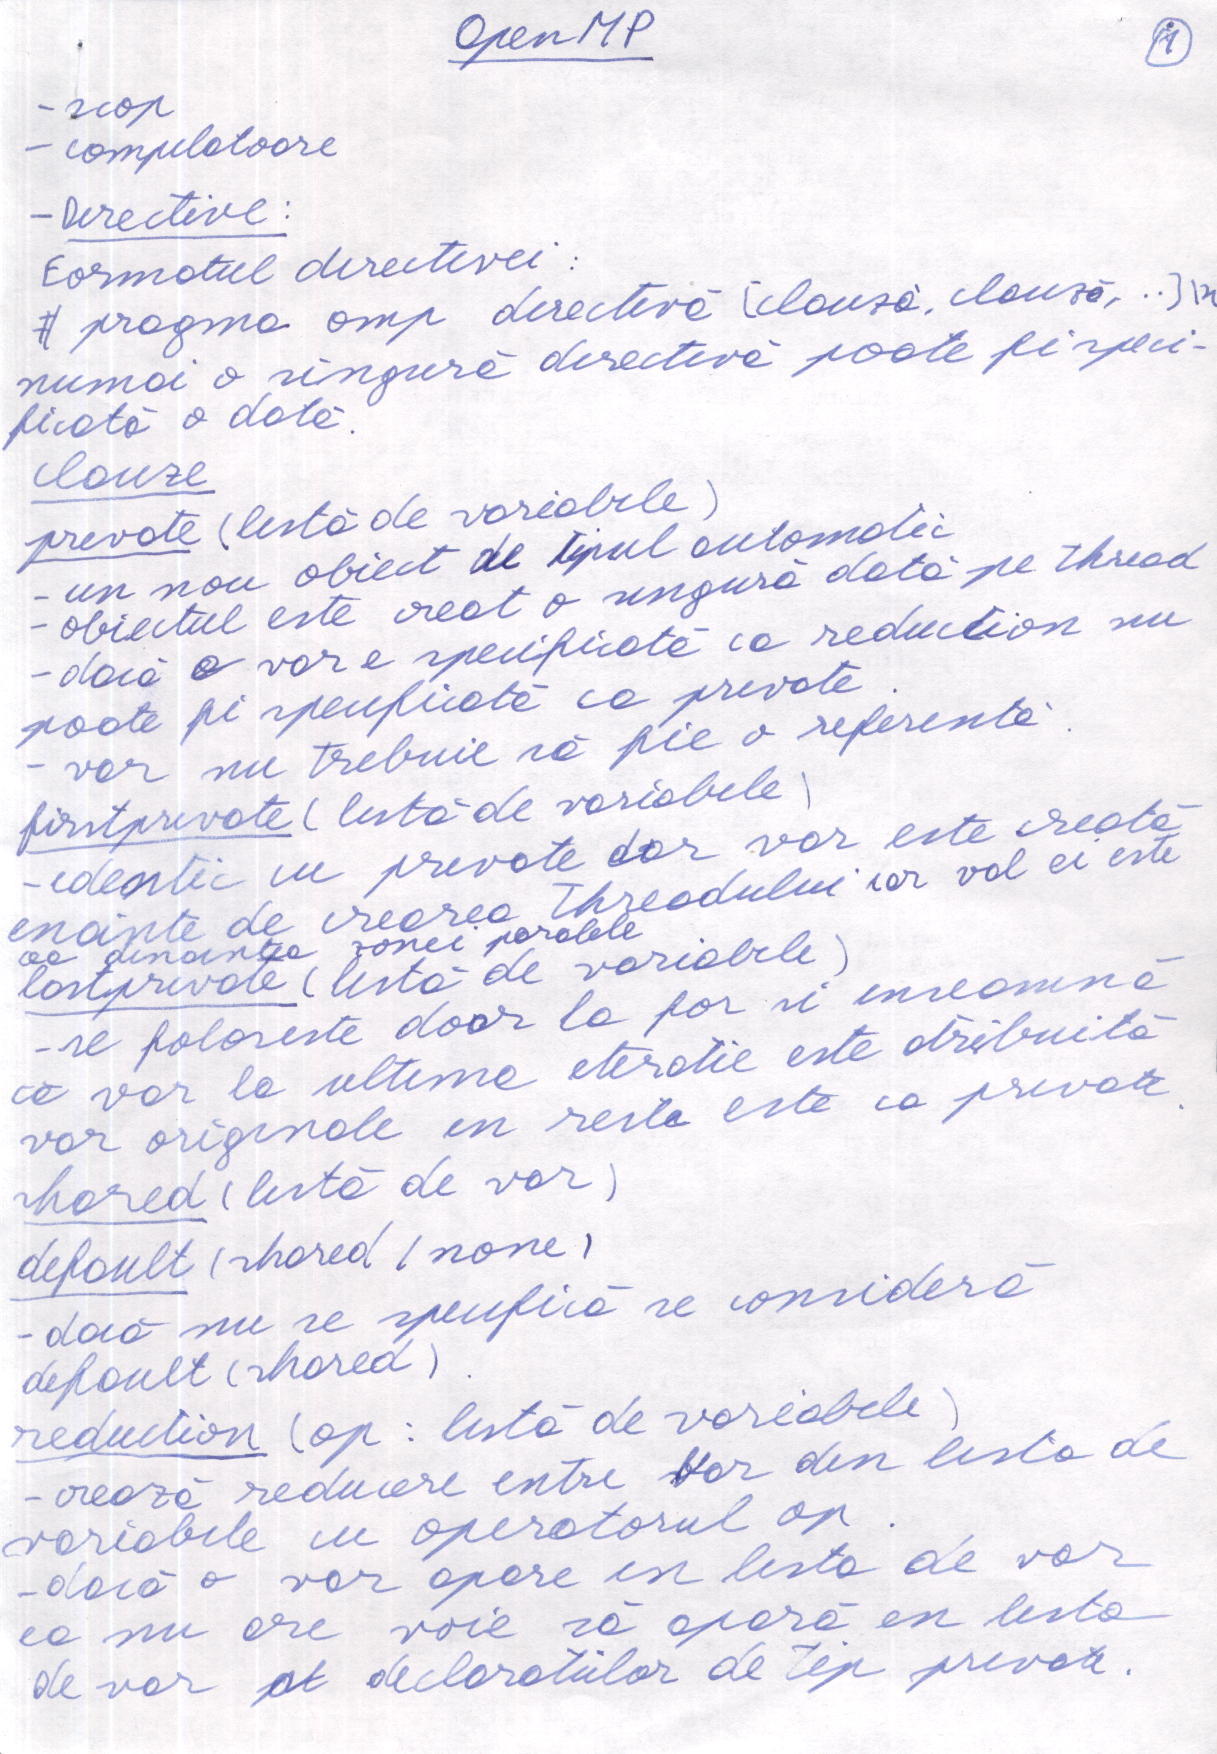 OpenMP
1
- scop
- compilatoare
- Directive:
Formatul directivei:
# pragma omp directivă [clauză, clauză, ..] \n
numai o singură directivă poate fi speci-
ficată o dată.
clauze
private (listă de variabile)
- un nou obiect de tipul automatic
- obiectul este creat o singură dată pe thread
- dacă o var e specificată ca reduction nu
poate fi specificată ca private.
- var nu trebuie să fie o referentă.
firstprivate (listă de variabile)
- identic cu private dar var este creată
inainte de crearea threadului iar val ei este
ca dinaintea zonei paralele
lastprivate (listă de variabile)
- se foloseste doar la for si inseamnă
că var la ultima iteratie este atribuită
var originale in rest este ca private.
shared (listă de var)
default (shared / none)
- dacă nu se specifică se consideră
default (shared).
reduction (op : listă de variabile)
- crează reducere intre var din lista de
variabile cu operatorul op.
- dacă o var apare in lista de var
ea nu are voie să apară in lista
de var pt declaratiilor de tip private.